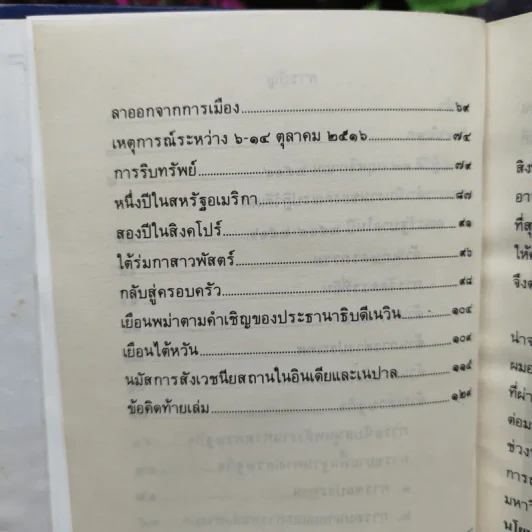 ลาออกจากการเมือง........................๖๙
เหตุการณ์ระหว่าง ๖-๑๔ ตุลาคม ๒๕๑๖........................๗๔
การริบทรัพย์........................๗๙
หนึ่งปีในสหรัฐอเมริกา........................๘๗
สองปีในสิงคโปร์........................๙๑
ใต้ร่มกาสาวพัสตร์........................๙๖
กลับสู่ครอบครัว........................๙๘
เยือนพม่าตามคำเชิญของประธานาธิบดีเนวิน........................๑๐๔
เยือนไต้หวัน........................๑๐๙
นมัสการสังเวชนียสถานในอินเดียและเนปาล........................๑๑๕
ข้อคิดท้ายเล่ม........................๑๒๙